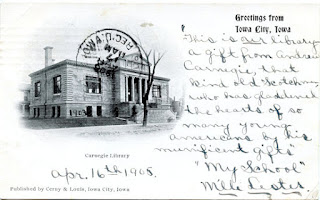 Greetings from
Iowa City, Iowa
This is our library
a gift from Andrew
Carnegie, that
kind old Scotchman
who has gladdened
the hearts of so
many young
americans by his
munificent gifts"
"My School"
REC'D.
AM
Carnegie Library
Apr. 16th 1905.
Published by Cerny & Louis, Iowa City, Iowa